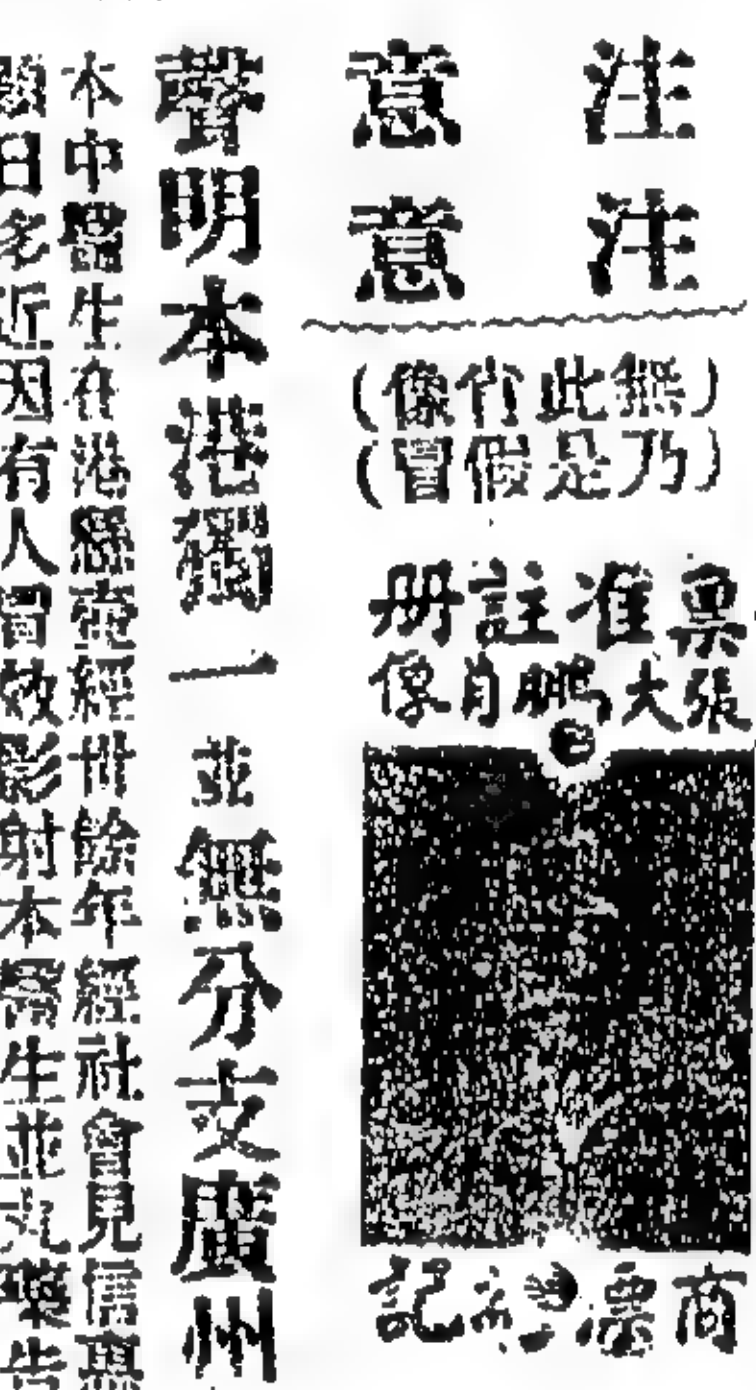 注意
注意
(無此肖像)
(乃是假冒)
稟准註册
張大鵬肖像
商標為記
聲明本港獨一並無分支廣州
本中醫生在港懸壺經卅餘年經社會見信
日多近因有人冒效影射本醫生並丸藥告